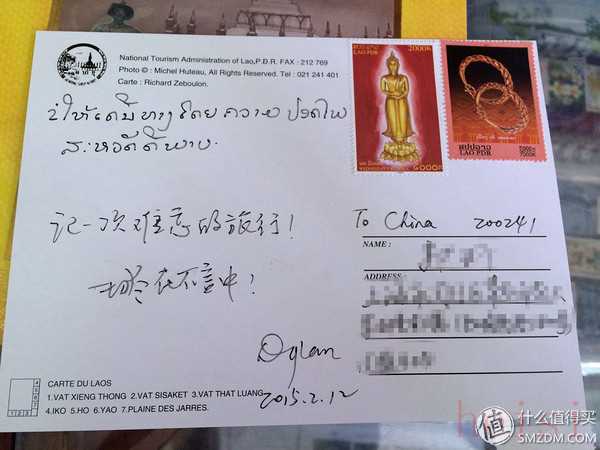 National Tourism Administration of Lao,P.D.R. FAX : 212 769
Photo © : Michel Huteau, All Rights Reserved. Tel : 021 241 401
Carte : Richard Zeboulon.
ຂໍໃຫ້ເດີນທາງໂດຍ ຄວາມ ປອດໄພ
ສະຫວັດດີພາບ.
记一次难忘的旅行!
一切尽在不言中!
Dylan
2015.2.12
LAO PDR
2000K
ສປປລາວ
LAO PDR
7000K
To China 200241
NAME :
ADDRESS :
CARTE DU LAOS
1.VAT XIENG THONG 2.VAT SISAKET 3.VAT THAT LUANG
4.IKO 5.HO 6.YAO 7.PLAINE DES JARRES.
值 什么值得买
SMZDM.COM